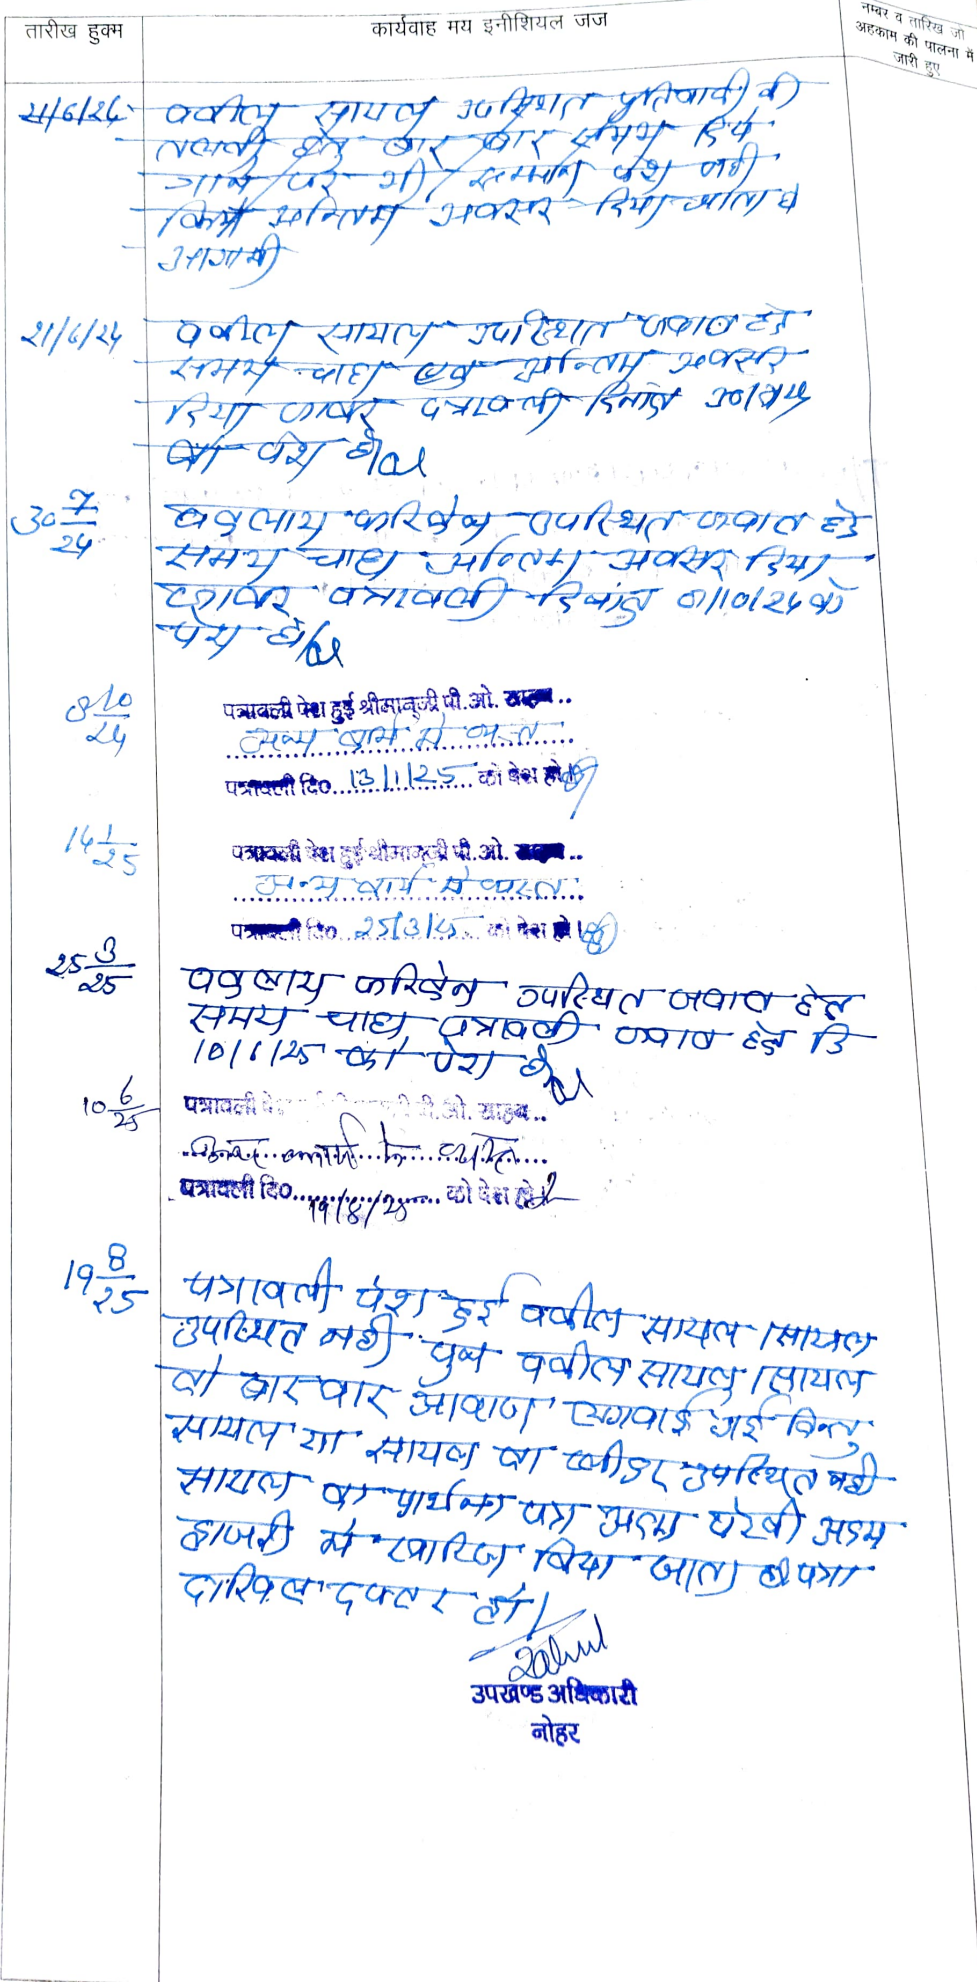 तारीख हुक्म
कार्यवाह मय इनीशियल जज
नम्बर व तारिख जो
अहकाम की पालना में
जारी हुए
21/6/24 वकील सायल उपस्थित प्रतिवादी की
तलबी हेतु बार बार समय दिये
जाने पर भी सम्मन पेश नही
किये अन्तिम अवसर दिया जाता है
आगामी
21/6/24 वकील सायल उपस्थित जवाब हेतु
समय चाहा एक अन्तिम अवसर
दिया जाकर पत्रावली दिनांक 30/7/24
को पेश हो
30 7/24 वकुलाय फरिकेन उपस्थित जवाब हेतु
समय चाहा अन्तिम अवसर दिया
जाकर पत्रावली दिनांक 8/10/24 को
पेश हो
8 10/24 पत्रावली पेश हुई श्रीमान्‌जी पी.ओ. साहब..
अन्य कार्य मे व्यस्त
पत्रावली दि० 13/1/25 को पेश हो।
14 1/25 पत्रावली पेश हुई श्रीमान्‌जी पी.ओ. साहब..
अन्य कार्य मे व्यस्त
पत्रावली दि० 25/3/25 को पेश हो।
25 3/25 वकुलाय फरिकेन उपस्थित जवाब हेतु
समय चाहा पत्रावली जवाब हेतु दि
10/6/25 को पेश हो
10 6/25 पत्रावली पेश पी.ओ. साहब..
कार्य में व्यस्त
पत्रावली दि० को पेश हो।
19/8/25
19 8/25 पत्रावली पेश हुई वकील सायल/सायल
उपस्थित नही पुन वकील सायल/सायल
को बार बार आवाज लगवाई गई किन्तु
सायल या सायल का प्लीडर उपस्थित नही
सायल का प्रार्थना पत्र अदम पैरवी अदम
हाजरी मे खारिज किया जाता है पत्रा
दाखिल दफ्तर हो।
उपखण्ड अधिकारी
नोहर